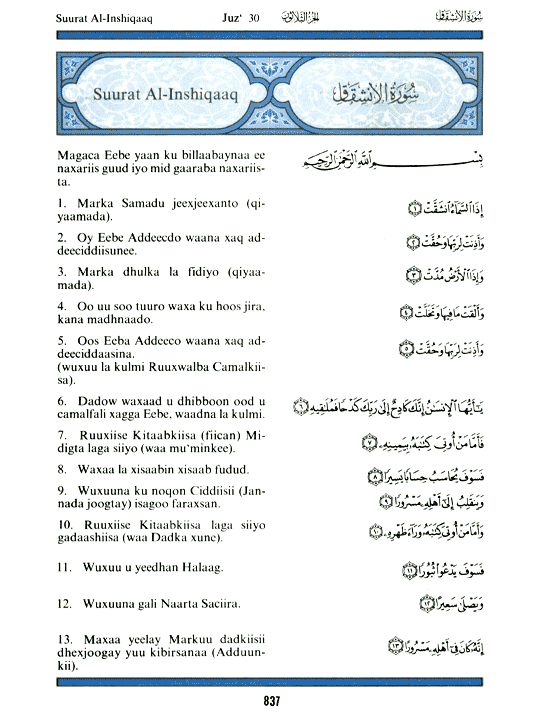 Suurat Al-Inshiqaaq Juz‘ 30 الجزء الثلاثون سورة الانشقاق
Suurat Al-Inshiqaaq سُورَةُ الانشِقَاقِ
Magaca Eebe yaan ku billaabaynaa ee بِسْمِ اللَّهِ الرَّحْمَٰنِ الرَّحِيمِ
naxariis guud iyo mid gaaraba naxariis-
ta.
1. Marka Samadu jeexjeexanto (qi- إِذَا ٱلسَّمَآءُ ٱنشَقَّتْ ١
yaamada).
2. Oy Eebe Addeecdo waana xaq ad- وَأَذِنَتْ لِرَبِّهَا وَحُقَّتْ ٢
deeciddiisunee.
3. Marka dhulka la fidiyo (qiyaa- وَإِذَا ٱلْأَرْضُ مُدَّتْ ٣
mada).
4. Oo uu soo tuuro waxa ku hoos jira, وَأَلْقَتْ مَا فِيهَا وَتَخَلَّتْ ٤
kana madhnaado.
5. Oos Eeba Addeeco waana xaq ad- وَأَذِنَتْ لِرَبِّهَا وَحُقَّتْ ٥
deeciddaasina.
(wuxuu la kulmi Ruuxwalba Camalkii-
sa).
6. Dadow waxaad u dhibboon ood u يَٰٓأَيُّهَا ٱلْإِنسَٰنُ إِنَّكَ كَادِحٌ إِلَىٰ رَبِّكَ كَدْحًا فَمُلَٰقِيهِ ٦
camalfali xagga Eebe, waadna la kulmi.
7. Ruuxiise Kitaabkiisa (fiican) Mi- فَأَمَّا مَنْ أُوتِىَ كِتَٰبَهُۥ بِيَمِينِهِۦ ٧
digta laga siiyo (waa mu’minkee).
8. Waxaa la xisaabin xisaab fudud. فَسَوْفَ يُحَاسَبُ حِسَابًا يَسِيرًا ٨
9. Wuxuuna ku noqon Ciddiisii (Jan- وَيَنقَلِبُ إِلَىٰٓ أَهْلِهِۦ مَسْرُورًا ٩
nada joogtay) isagoo faraxsan.
10. Ruuxiise Kitaabkiisa laga siiyo وَأَمَّا مَنْ أُوتِىَ كِتَٰبَهُۥ وَرَآءَ ظَهْرِهِۦ ١٠
gadaashiisa (waa Dadka xune).
11. Wuxuu u yeedhan Halaag. فَسَوْفَ يَدْعُوا۟ ثُبُورًا ١١
12. Wuxuuna gali Naarta Saciira. وَيَصْلَىٰ سَعِيرًا ١٢
13. Maxaa yeelay Markuu dadkiisii إِنَّهُۥ كَانَ فِىٓ أَهْلِهِۦ مَسْرُورًا ١٣
dhexjoogay yuu kibirsanaa (Adduun-
kii).
837